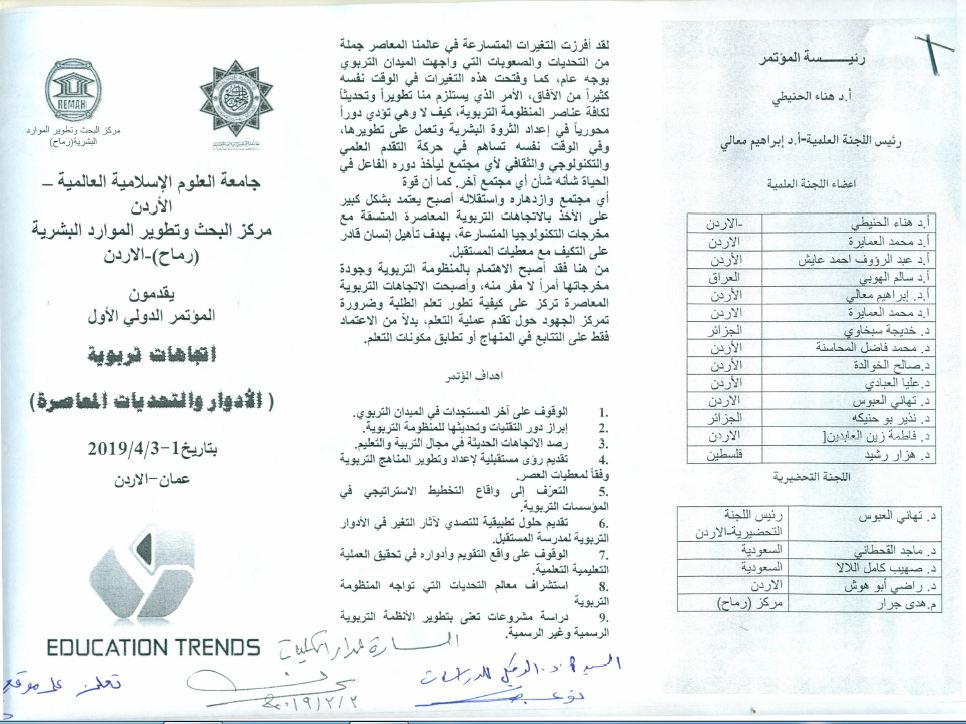 رئيســــــة المؤتمر
أ.د هناء الحنيطي
رئيس اللجنة العلمية-أ.د إبراهيم معالي
اعضاء اللجنة العلمية
أ.د هناء الحنيطي -الاردن
أ.د محمد العمايرة الاردن
أ.د عبد الرؤوف احمد عايش الأردن
أ.د سالم الهوبي العراق
أ.د. إبراهيم معالي الأردن
ا.د محمد العمايرة الاردن
د. خديجة سبخاوي الجزائر
د. محمد فاضل المحاسنة الأردن
د.صالح الخوالدة الأردن
د.عليا العبادي الأردن
د. تهاني العبوس الأردن
د. نذير بو حنيكه الجزائر
د. فاطمة زين العابدين] الاردن
د. هزار رشيد فلسطين
اللجنة التحضيرية
د. تهاني العبوس رئيس اللجنة
التحضيرية-الاردن
د. ماجد القحطاني السعودية
د. صهيب كامل اللالا السعودية
د. راضي أبو هوش الاردن
م.هدى جرار مركز (رماح)
لقد أفرزت التغيرات المتسارعة في عالمنا المعاصر جملة
من التحديات والصعوبات التي واجهت الميدان التربوي
بوجه عام، كما وفتحت هذه التغيرات في الوقت نفسه
كثيراً من الآفاق، الأمر الذي يستلزم منا تطويراً وتحديثاً
لكافة عناصر المنظومة التربوية، كيف لا وهي تؤدي دوراً
محورياً في إعداد الثروة البشرية وتعمل على تطويرها،
وفي الوقت نفسه تساهم في حركة التقدم العلمي
والتكنولوجي والثقافي لأي مجتمع ليأخذ دوره الفاعل في
الحياة شأنه شأن أي مجتمع آخر. كما أن قوة
أي مجتمع وازدهاره واستقلاله أصبح يعتمد بشكل كبير
على الأخذ بالاتجاهات التربوية المعاصرة المتسقة مع
مخرجات التكنولوجيا المتسارعة، بهدف تأهيل إنسان قادر
على التكيف مع معطيات المستقبل.
من هنا فقد أصبح الاهتمام بالمنظومة التربوية وجودة
مخرجاتها أمراً لا مفر منه، وأصبحت الاتجاهات التربوية
المعاصرة تركز على كيفية تطور تعلم الطلبة وضرورة
تمركز الجهود حول تقدم عملية التعلم، بدلاً من الاعتماد
فقط على التتابع في المنهاج أو تطابق مكونات التعلم.
اهداف المؤتمر
1. الوقوف على آخر المستجدات في الميدان التربوي.
2. إبراز دور التقنيات وتحديثها للمنظومة التربوية.
3. رصد الاتجاهات الحديثة في مجال التربية والتعليم.
4. تقديم رؤى مستقبلية لإعداد وتطوير المناهج التربوية
وفقاً لمعطيات العصر.
5. التعرّف إلى واقاع التخطيط الاستراتيجي في
المؤسسات التربوية.
6. تقديم حلول تطبيقية للتصدي لآثار التغير في الأدوار
التربوية لمدرسة المستقبل.
7. الوقوف على واقع التقويم وأدواره في تحقيق العملية
التعليمية التعلمية.
8. استشراف معالم التحديات التي تواجه المنظومة
التربوية
9. دراسة مشروعات تعنى بتطوير الأنظمة التربوية
الرسمية وغير الرسمية.
REMAH
مركز البحث وتطوير الموارد
البشرية(رماح)
جامعة العلوم الإسلامية العالمية –
الأردن
مركز البحث وتطوير الموارد البشرية
(رماح)-الاردن
يقدمون
المؤتمر الدولي الأول
اتجاهات تربوية
( الأدوار والتحديات المعاصرة)
بتاريخ1-2019/4/3
عمان-الاردن
EDUCATION TRENDS
٢٠١٩/٢/٢